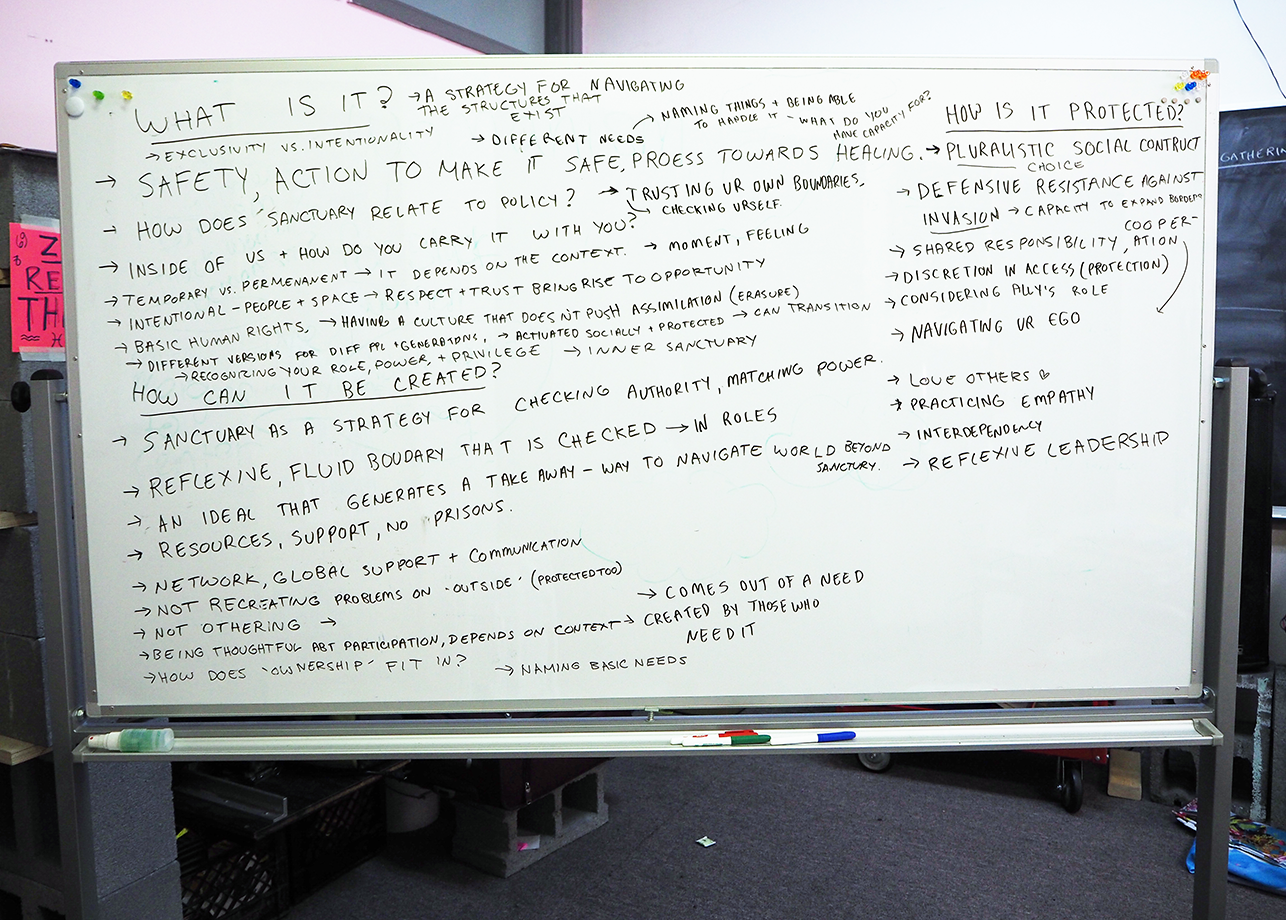 WHAT IS IT? → A STRATEGY FOR NAVIGATING
THE STRUCTURES THAT
EXIST
→ EXCLUSIVITY VS. INTENTIONALITY
→ DIFFERENT NEEDS
→ NAMING THINGS + BEING ABLE
TO HANDLE IT - WHAT DO YOU
HAVE CAPACITY FOR?
→ SAFETY, ACTION TO MAKE IT SAFE, PROESS TOWARDS HEALING.
→ HOW DOES 'SANCTUARY RELATE TO POLICY? → TRUSTING UR OWN BOUNDARIES,
→ CHECKING URSELF.
→ INSIDE OF US + HOW DO YOU CARRY IT WITH YOU?
→ TEMPORARY VS. PERMENANENT → IT DEPENDS ON THE CONTEXT. → MOMENT, FEELING
→ INTENTIONAL - PEOPLE + SPACE → RESPECT + TRUST BRING RISE TO OPPORTUNITY
→ BASIC HUMAN RIGHTS, → HAVING A CULTURE THAT DOESN'T PUSH ASSIMILATION (ERASURE)
→ DIFFERENT VERSIONS FOR DIFF PPL + GENERATIONS, → ACTIVATED SOCIALLY + PROTECTED → CAN TRANSITION
→ RECOGNIZING YOUR ROLE, POWER, + PRIVILEGE → INNER SANCTUARY
HOW CAN IT BE CREATED?
→ SANCTUARY AS A STRATEGY FOR CHECKING AUTHORITY, MATCHING POWER.
→ REFLEXIVE, FLUID BOUDARY THAT IS CHECKED → IN ROLES
→ AN IDEAL THAT GENERATES A TAKE AWAY - WAY TO NAVIGATE WORLD BEYOND
SANCTURY.
→ RESOURCES, SUPPORT, NO PRISONS.
→ NETWORK, GLOBAL SUPPORT + COMMUNICATION
→ NOT RECREATING PROBLEMS ON 'OUTSIDE' (PROTECTED TOO)
→ NOT OTHERING →
→ COMES OUT OF A NEED
→ BEING THOUGHTFUL ABT PARTICIPATION, DEPENDS ON CONTEXT → CREATED BY THOSE WHO
NEED IT
→ HOW DOES 'OWNERSHIP' FIT IN? → NAMING BASIC NEEDS
HOW IS IT PROTECTED?
→ PLURALISTIC SOCIAL CONTRUCT
CHOICE
→ DEFENSIVE RESISTANCE AGAINST
INVASION → CAPACITY TO EXPAND BORDERS
→ SHARED RESPONSIBILITY, COOPER-
ATION
→ DISCRETION IN ACCESS (PROTECTION)
→ CONSIDERING ALLY'S ROLE
→ NAVIGATING UR EGO
→ LOVE OTHERS ♡
→ PRACTICING EMPATHY
→ INTERDEPENDENCY
→ REFLEXIVE LEADERSHIP
Z
RE
TH
GATHERIN